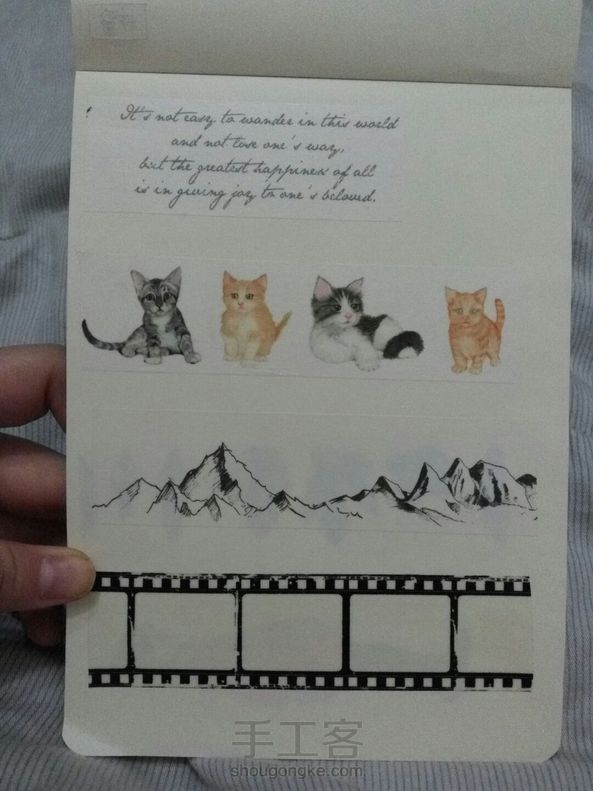 It's not easy to wander in this world
and not lose one's way,
but the greatest happiness of all
is in giving joy to one's beloved.
手工客
shougongke.com